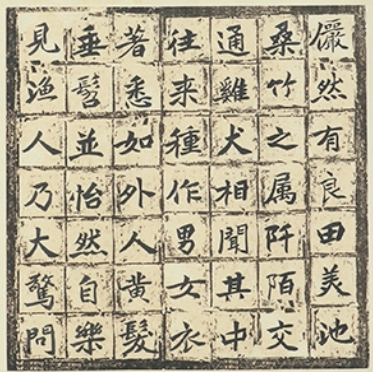 儼然有良田美池
桑竹之属阡陌交
通雞犬相聞其中
往来種作男女衣
著悉如外人黄髮
垂髫並怡然自樂
見漁人乃大驚問